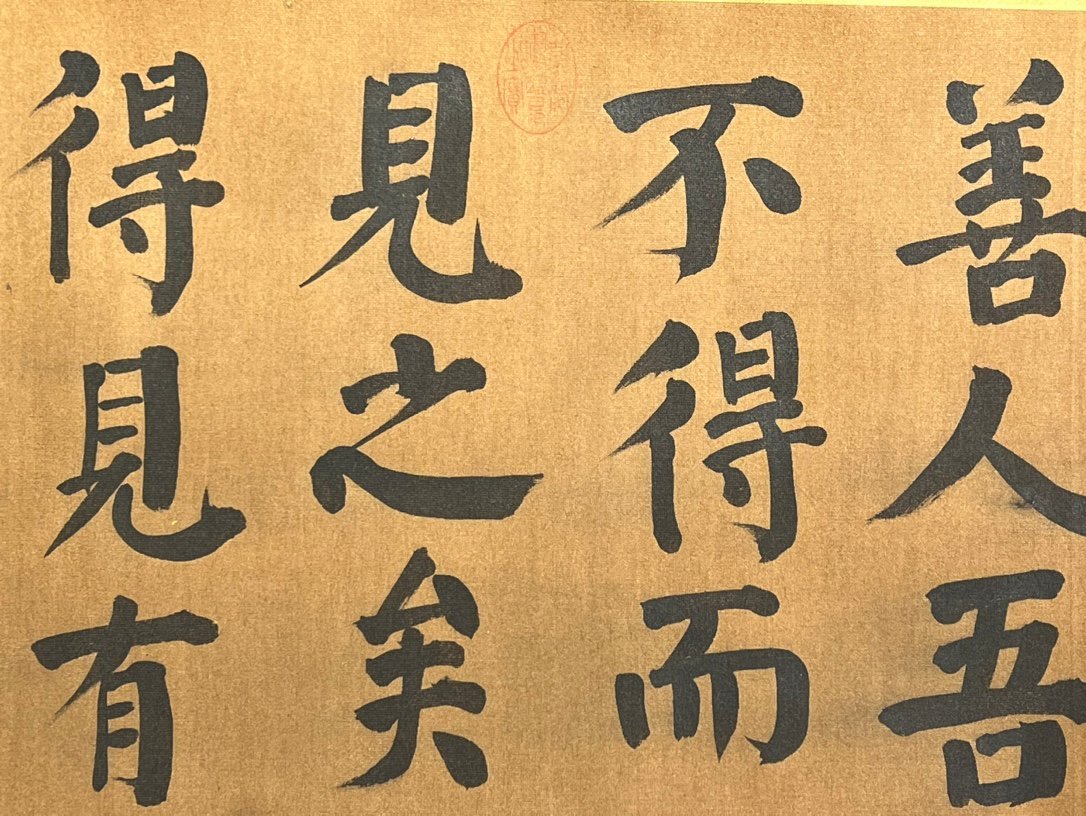 善人吾
不得而
見之矣
得見有